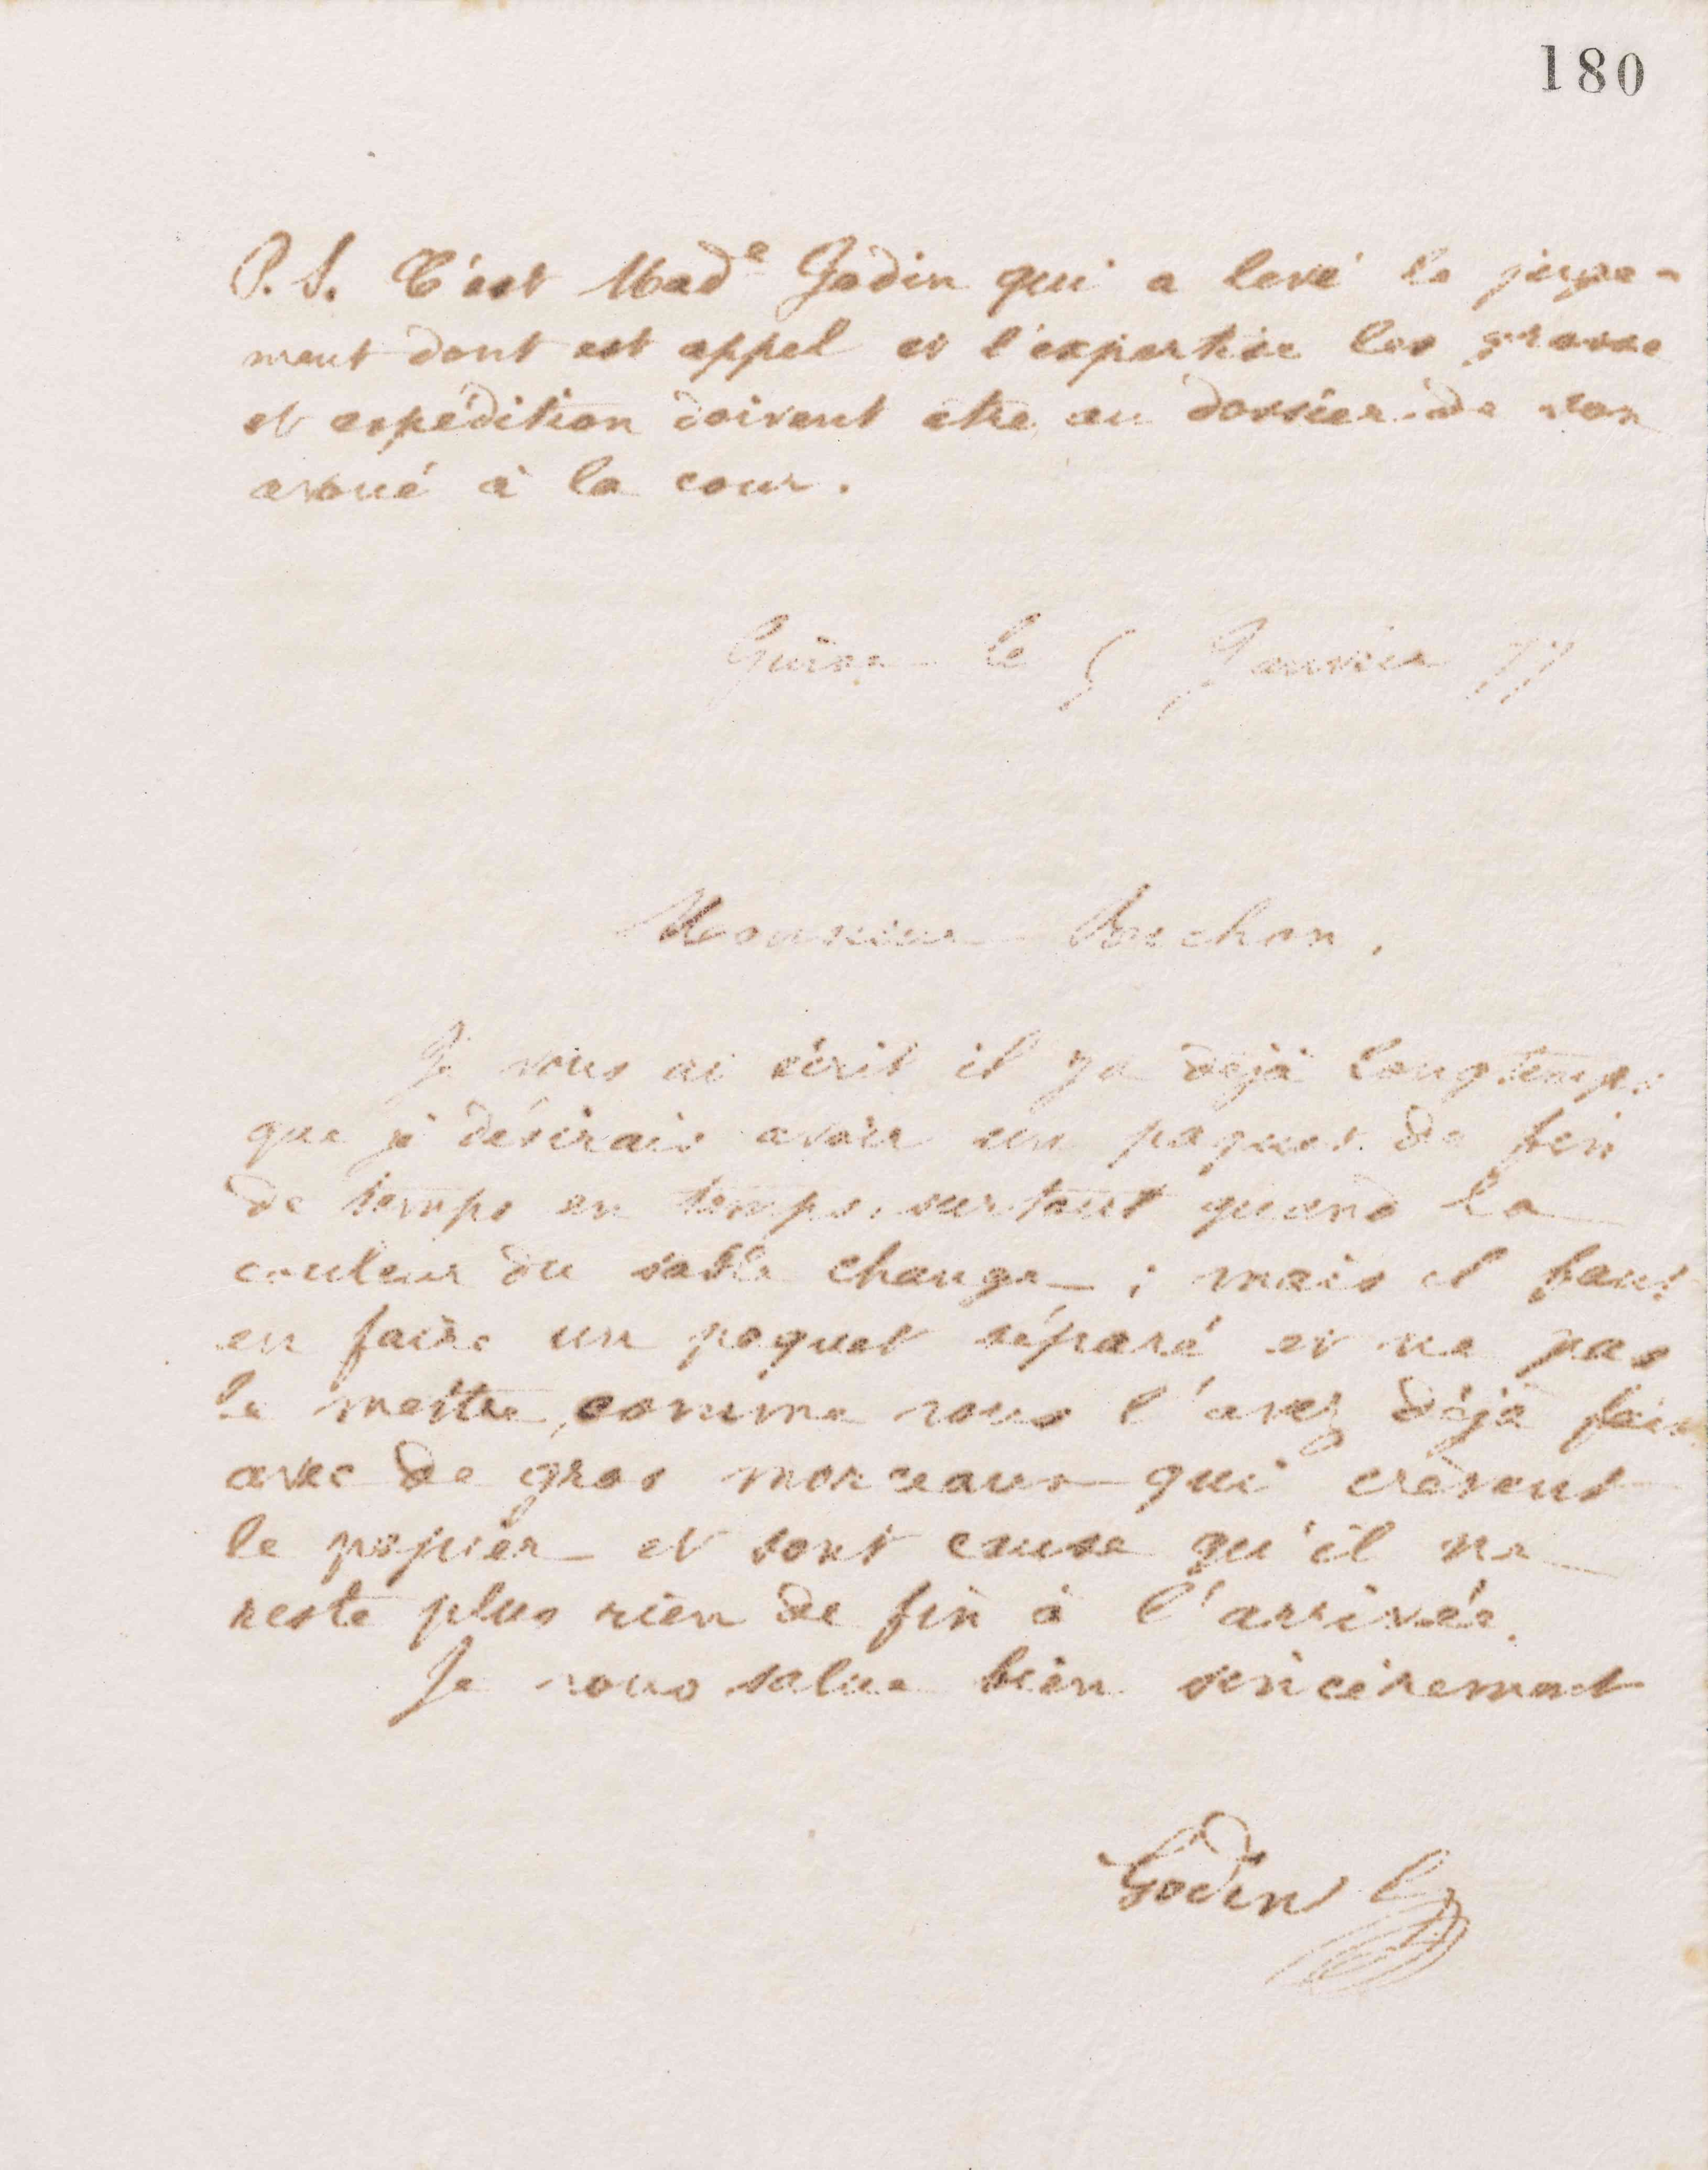 180
P. S. C'est Mad^e Godin qui a levé le juge-
ment dont est appel et l'expertise les grosse
et expédition doivent etre au dossier de son
avoué à la cour.
Guise le 5 Janvier 77
Monsieur
Je vous ai écrit il y a déjà longtemps
que je désirais avoir un paquet de fin
de temps en temps, surtout quand la
couleur du sable change ; mais il faut
en faire un paquet séparé et ne pas
le mettre, comme vous l'avez déjà fait
avec de gros morceaux qui crèvent
le papier et sont cause qu'il ne
reste plus rien de fin à l'arrivée.
Je vous salue bien sincèrement
Godin